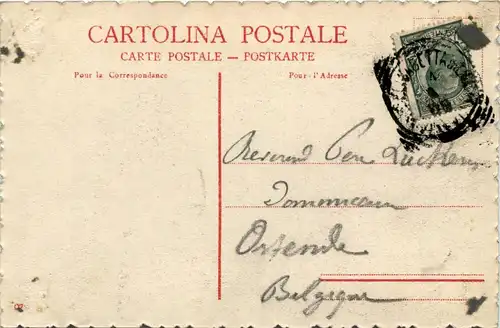 CARTOLINA POSTALE
CARTE POSTALE — POSTKARTE
Pour la Correspondance
Pour l'Adresse
Reverend Pere
Dominicain
Ostende
Belgique
02